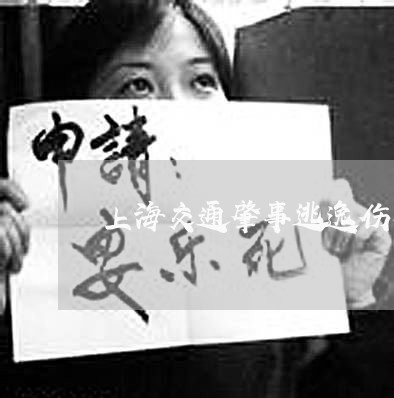 申請：
上海交通肇事逃逸伤
安乐死